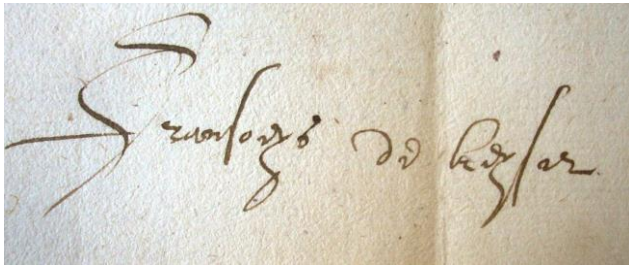 Fransoeys de keyser